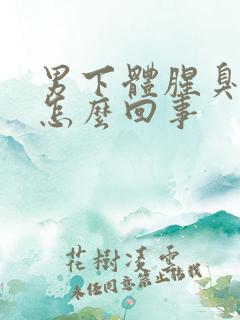 男下體腥臭
怎麼回事
花樹凌雲
未经同意禁止转载